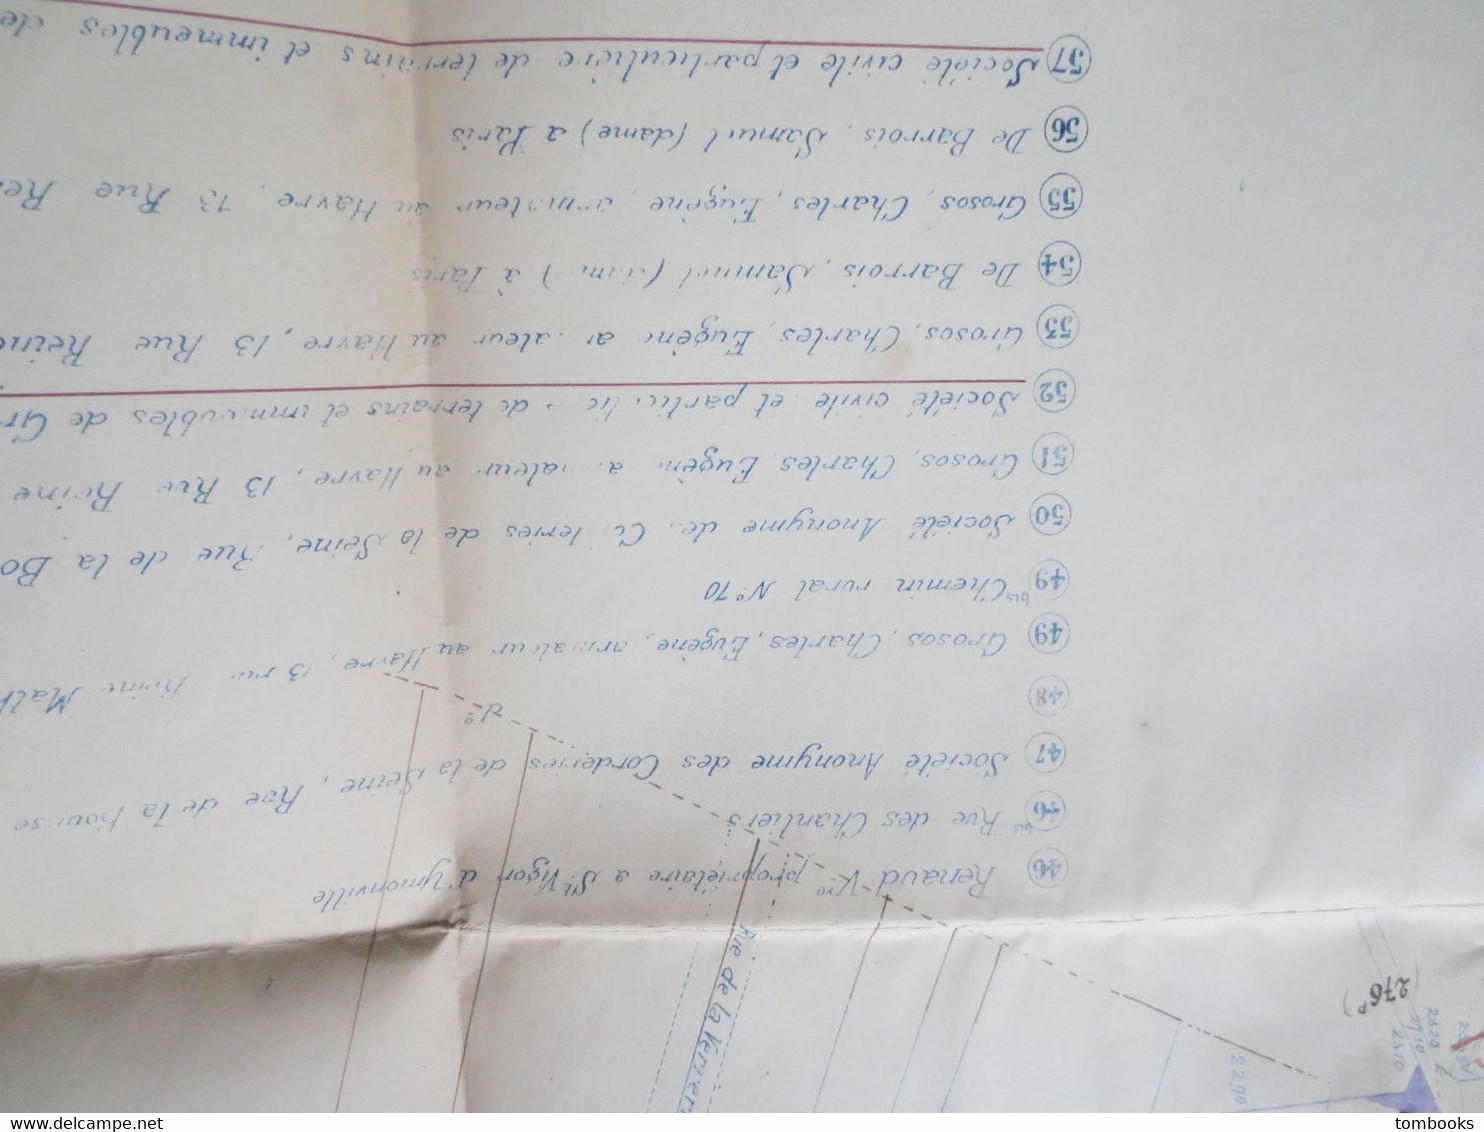 46 Renaud Vve propriétaire a St Vigor d'Ymonville
46 bis Rue des Chantiers
47 Société Anonyme des Corderies de la Seine, Rue de la Bourse
48 do
49 Grosos, Charles, Eugène, armateur au Havre, 13 rue Reine Math
49 bis Chemin rural No 70
50 Société Anonyme des Corderies de la Seine, Rue de la Bo
51 Grosos, Charles, Eugène armateur au Havre, 13 Rue Reine
52 Société civile et particulière de terrains et immeubles de Gr
53 Grosos, Charles, Eugène armateur au Havre, 13 Rue Reine
54 De Barrois, Samuel (dame) à Paris
55 Grosos, Charles, Eugène, armateur au Havre, 13 Rue Rei
56 De Barrois, Samuel (dame) a Paris
57 Société civile et particulière de terrains et immeubles de
Rue de la Verrer
(276 P)
2290
2310
2710
2820
Delcampe.net
tombooks